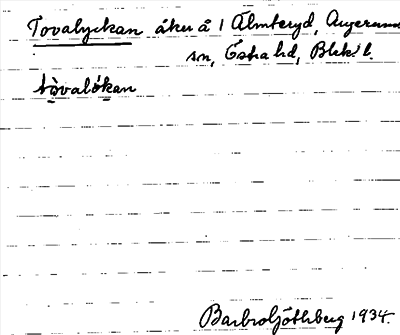 Tovalyckan åker å 1 Älmteryd, Augerums
sn, Östra hd, Blek. l.
tòvalökan
Barbro Söthberg 1934.